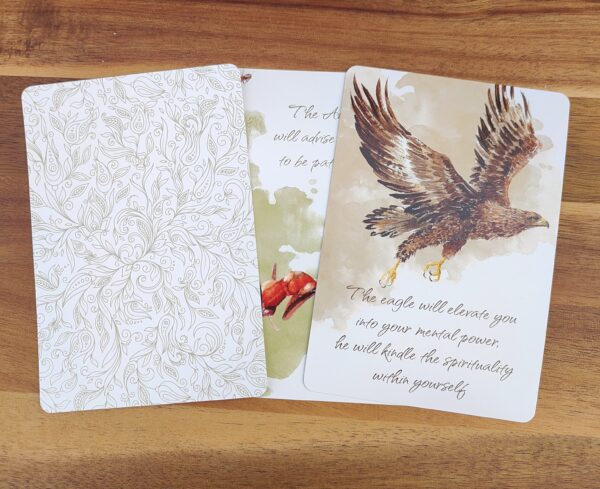 The
will advise
to be
The eagle will elevate you
into your mental power,
he will kindle the spirituality
within yourself